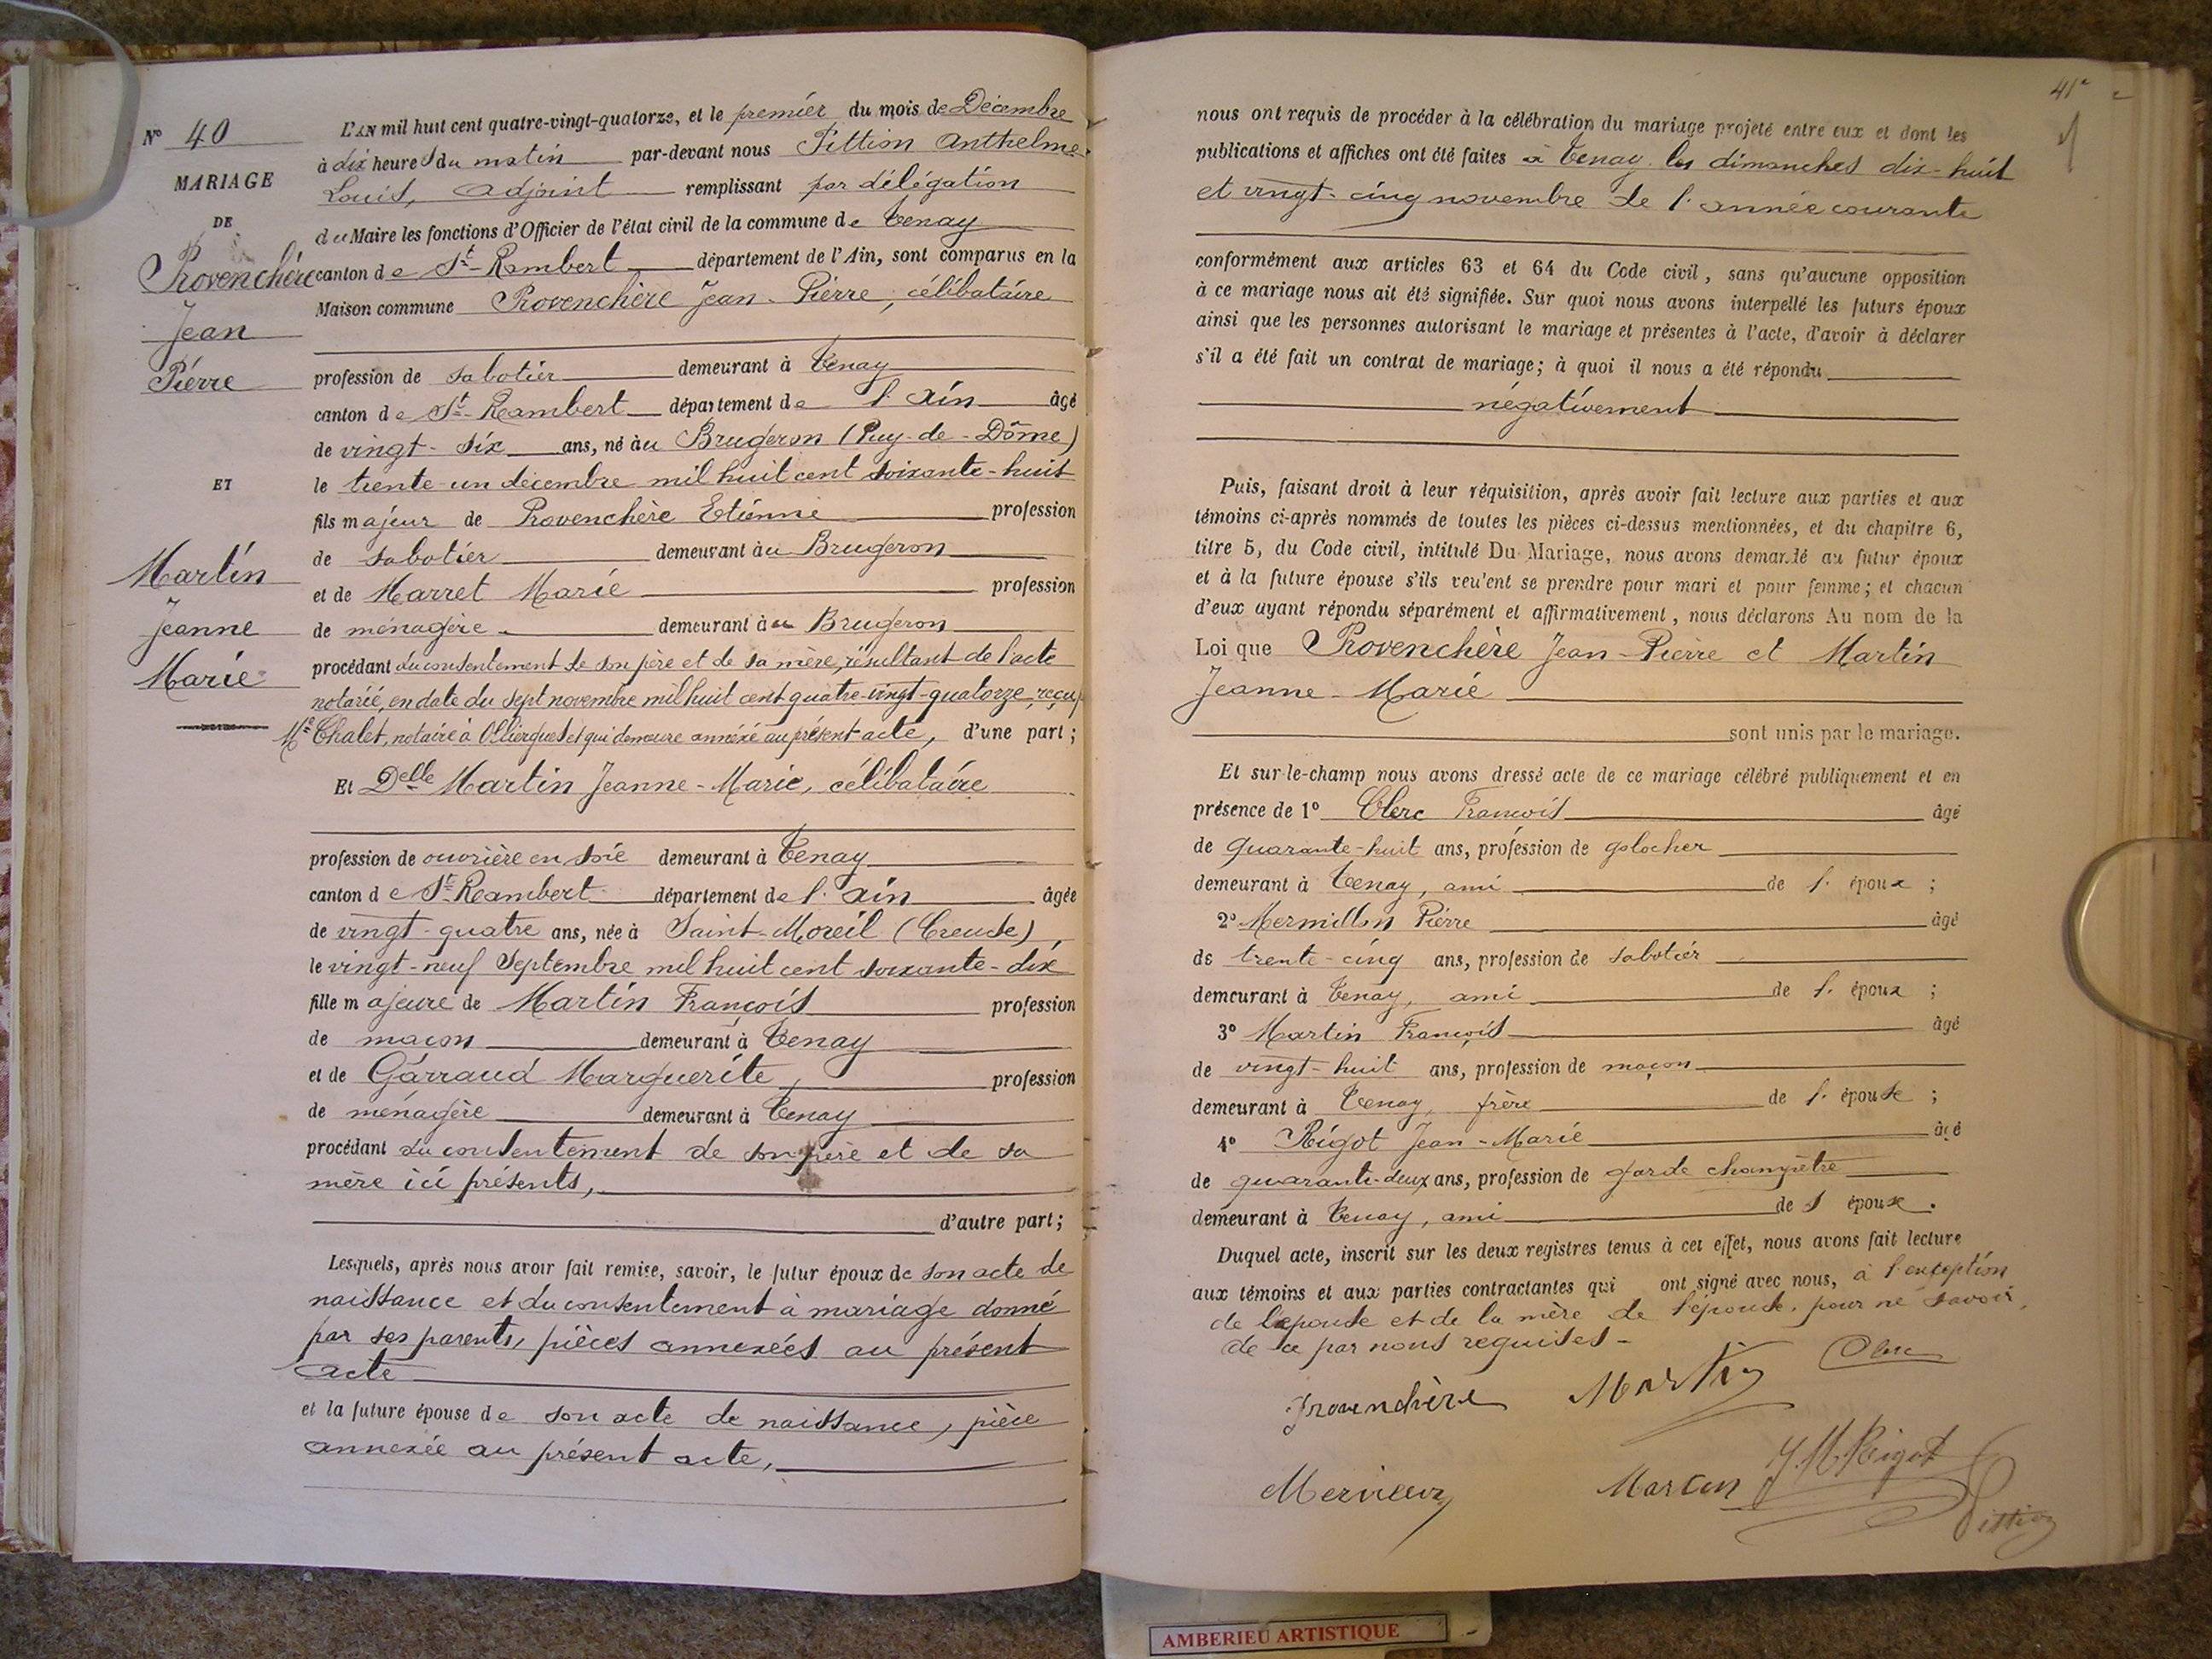 N° 40
MARIAGE
DE
Provenchère
Jean
Pierre
ET
Martin
Jeanne
Marie
L'AN mil huit cent quatre-vingt-quatorze, et le premier du mois de Décembre
à dix heures du matin par-devant nous Pittion Anthelme
Louis, adjoint remplissant par délégation
du Maire les fonctions d'Officier de l'état civil de la commune de Tenay
canton de St-Rambert département de l'Ain, sont comparus en la
Maison commune Provenchère Jean-Pierre, célibataire
profession de sabotier demeurant à Tenay
canton de St-Rambert département de l'Ain âgé
de vingt-six ans, né au Brugeron (Puy-de-Dôme)
le trente-un décembre mil huit cent soixante-huit
fils majeur de Provenchère Etienne profession
de sabotier demeurant au Brugeron
et de Marret Marie profession
de ménagère demeurant à au Brugeron
procédant du consentement de son père et de sa mère, résultant de l'acte
notarié, en date du sept novembre mil huit cent quatre-vingt-quatorze, reçu
Me Chalet, notaire à Olliergues et qui demeure annéxé au présent acte, d'une part;
Et Delle Martin Jeanne-Marie, célibataire
profession de ouvrière en soie demeurant à Tenay
canton de St-Rambert département de l'Ain âgée
de vingt-quatre ans, née à Saint-Moreil (Creuse)
le vingt-neuf Septembre mil huit cent soixante-dix
fille majeure de Martin François profession
de maçon demeurant à Tenay
et de Garraud Marguerite, profession
de ménagère demeurant à Tenay
procédant du consentement de son père et de sa
mère ici présents,
d'autre part;
Lesquels, après nous avoir fait remise, savoir, le futur époux de son acte de
naissance et du consentement à mariage donné
par ses parents, pièces annexées au présent
acte
et la future épouse de son acte de naissance, pièce
annexée au présent acte,
41e
nous ont requis de procéder à la célébration du mariage projeté entre eux et dont les
publications et affiches ont été faites à Tenay les dimanches dix-huit
et vingt-cinq novembre de l'année courante
conformément aux articles 63 et 64 du Code civil, sans qu'aucune opposition
à ce mariage nous ait été signifiée. Sur quoi nous avons interpellé les futurs époux
ainsi que les personnes autorisant le mariage et présentes à l'acte, d'avoir à déclarer
s'il a été fait un contrat de mariage; à quoi il nous a été répondu
négativement
Puis, faisant droit à leur réquisition, après avoir fait lecture aux parties et aux
témoins ci-après nommés de toutes les pièces ci-dessus mentionnées, et du chapitre 6,
titre 5, du Code civil, intitulé Du Mariage, nous avons demandé au futur époux
et à la future épouse s'ils veulent se prendre pour mari et pour femme; et chacun
d'eux ayant répondu séparément et affirmativement, nous déclarons Au nom de la
Loi que Provenchère Jean-Pierre et Martin
Jeanne-Marie
sont unis par le mariage.
Et sur-le-champ nous avons dressé acte de ce mariage célébré publiquement et en
présence de 1° Clerc François âgé
de quarante-huit ans, profession de galocher
demeurant à Tenay, ami de l'époux ;
2° Mermillon Pierre âgé
de trente-cinq ans, profession de sabotier
demeurant à Tenay, ami de l'époux ;
3° Martin François âgé
de vingt-huit ans, profession de maçon
demeurant à Tenay, frère de l'épouse ;
4° Rigot Jean-Marie âgé
de quarante-deux ans, profession de garde champêtre
demeurant à Tenay, ami de l'époux.
Duquel acte, inscrit sur les deux registres tenus à cet effet, nous avons fait lecture
aux témoins et aux parties contractantes qui ont signé avec nous, à l'exception
de l'épouse et de la mère de l'épouse, pour ne savoir,
de ce par nous requises-
Provenchère Martin Clerc
J.M. Rigot
Pittion
AMBERIEU ARTISTIQUE